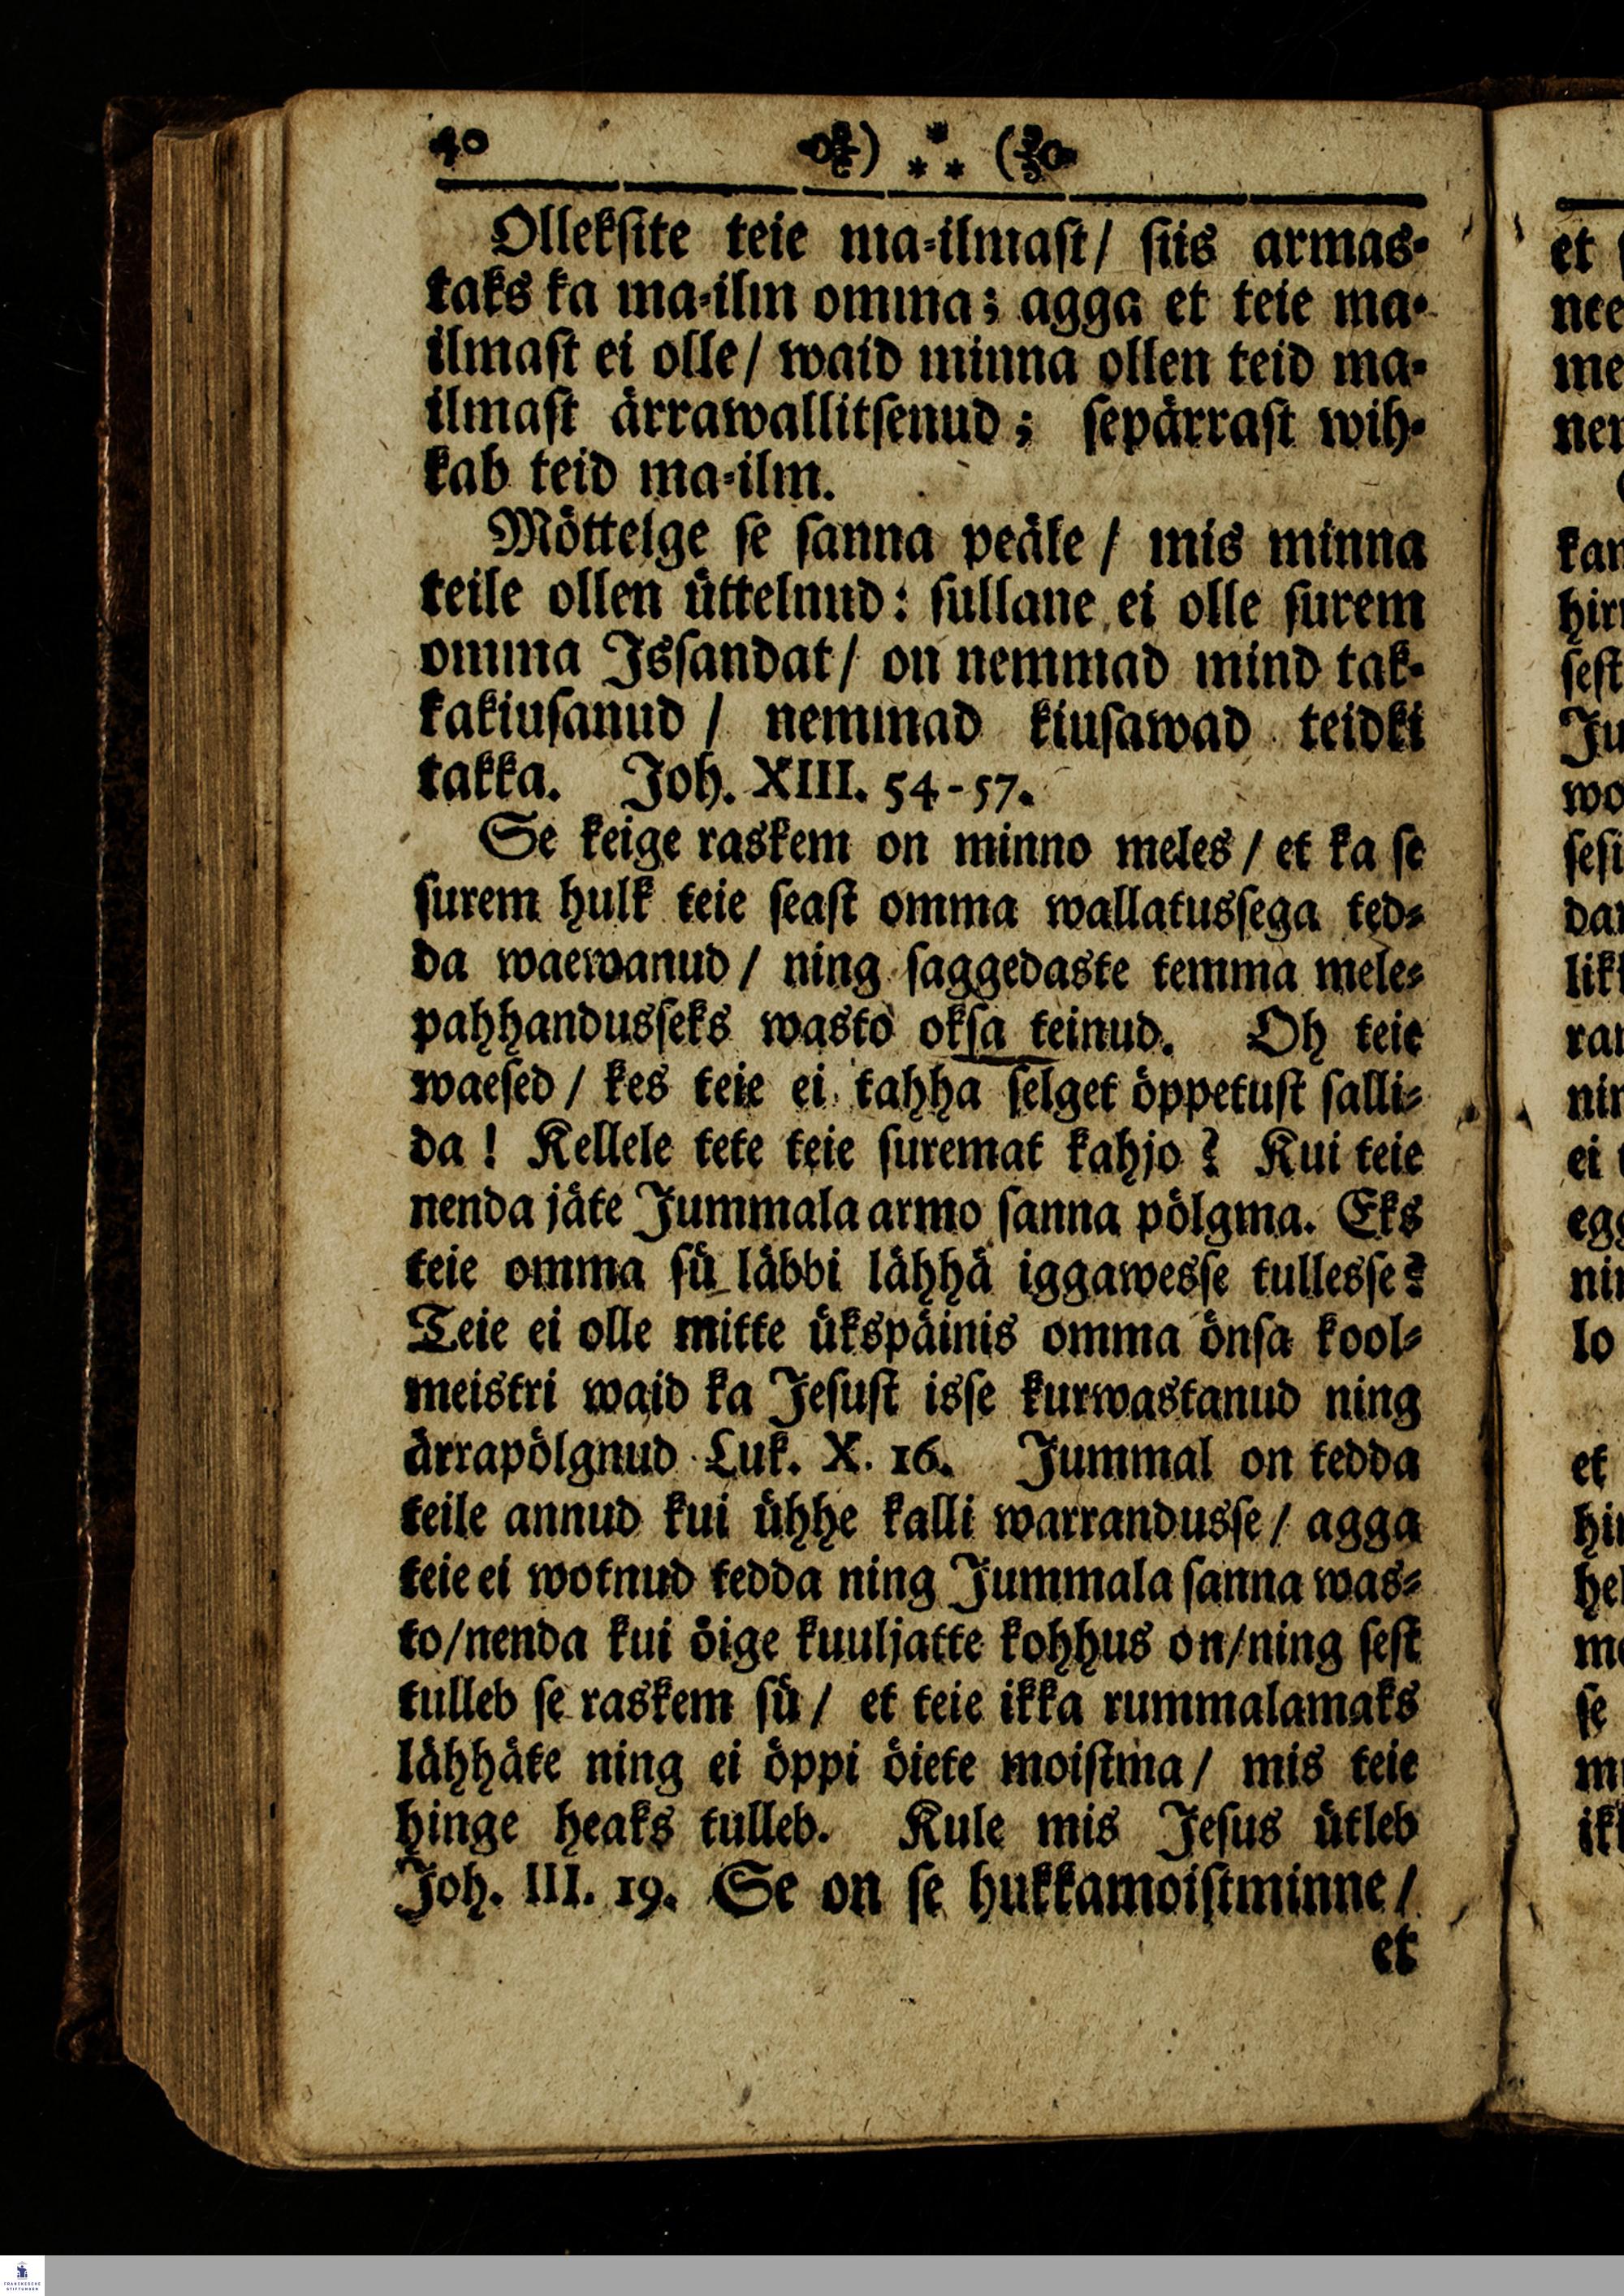 40 ) * * * (
Olleksite teie ma-ilmast/ siis armas-
taks ka ma-ilm omma; agga et teie ma-
ilmast ei olle/ waid minna ollen teid ma-
ilmast ärrawallitsenud; sepärrast wih-
kab teid ma-ilm.
Möttelge se sanna peäle/ mis minna
teile ollen üttelnud: sullane ei olle surem
omma Issandat/ on nemmad mind tak-
kakiusanud/ nemmad kiusawad teidki
takka. Joh. XIII. 54-57.
Se keige raskem on minno meles/ et ka se
surem hulk teie seast omma wallatussega ted-
da waewanud/ ning saggedaste temma mele-
pahhandusseks wasto oksa teinud. Oh teie
waesed/ kes teie ei tahha selget öppetust salli-
da! Kellele tete teie suremat kahjo? Kui teie
nenda jäte Jummala armo sanna pölgma. Eks
teie omma sü läbbi lähhä iggawesse tullesse?
Teie ei olle mitte ükspäinis omma önsa kool-
meistri waid ka Jesust isse kurwastanud ning
ärrapölgnud Luk. X. 16. Jummal on tedda
teile annud kui ühhe kalli warrandusse/ agga
teie ei wotnud tedda ning Jummala sanna was-
to/nenda kui öige kuuljatte kohhus on/ning sest
tulleb se raskem sü/ et teie ikka rummalamaks
lähhäte ning ei öppi öiete moistma/ mis teie
hinge heaks tulleb. Kule mis Jesus ütleb
Joh. III. 19. Se on se hukkamoistminne/
et